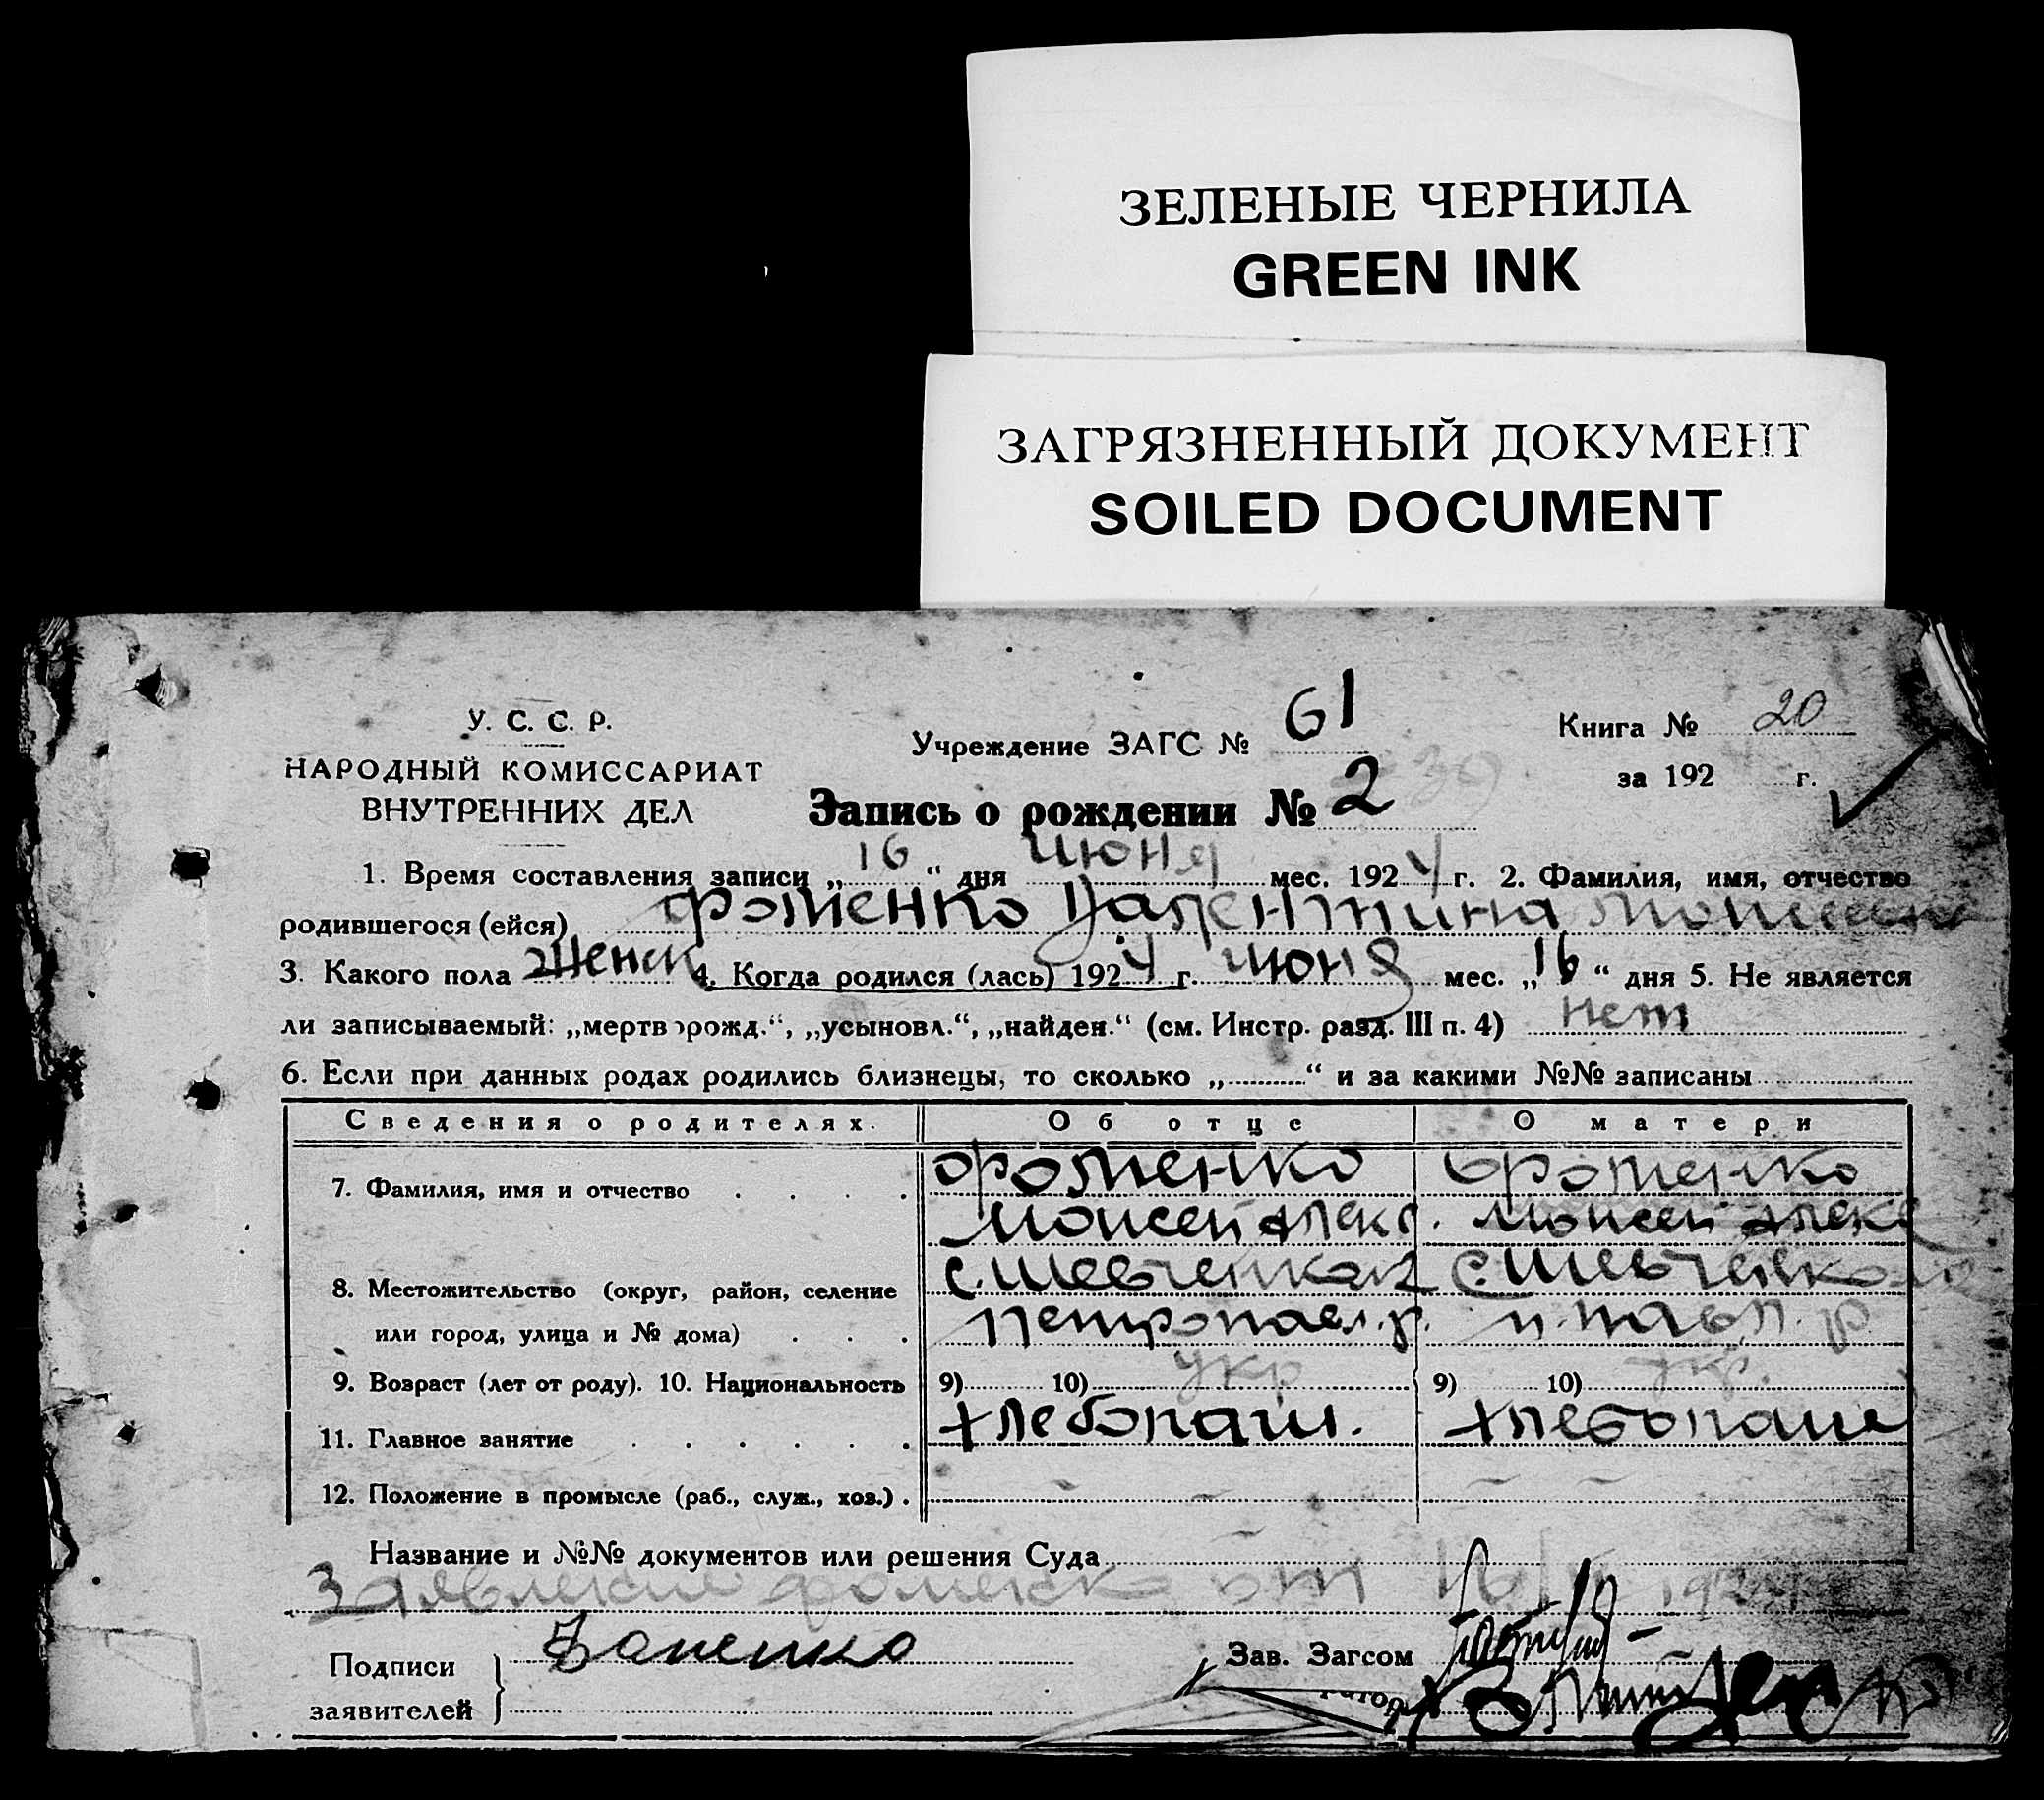 ЗЕЛЕНЫЕ ЧЕРНИЛА
GREEN INK
ЗАГРЯЗНЕННЫЙ ДОКУМЕНТ
SOILED DOCUMENT
У. С. С. Р.
НАРОДНЫЙ КОМИССАРИАТ
ВНУТРЕННИХ ДЕЛ
Учреждение ЗАГС № 61
Книга № 20
за 192 г.
Запись о рождении № 2 39
1. Время составления записи „16“ дня июня мес. 1924 г. 2. Фамилия, имя, отчество
родившегося (ейся) Фоменко Валентина Моисеевна
3. Какого пола Женск 4. Когда родился (лась) 1924 г. июня мес. „16“ дня 5. Не является
ли записываемый: „мертворожд.“, „усыновл.“, „найден.“ (см. Инстр. разд. III п. 4) нет
6. Если при данных родах родились близнецы, то сколько „..........“ и за какими №№ записаны
Сведения о родителях. Об отце О матери
7. Фамилия, имя и отчество Фоменко Фоменко
Моисей Алекс. Моисей Алекс
8. Местожительство (округ, район, селение с. Шевченка с. Шевченко
или город, улица и № дома) Петропавл. р. п. павл. р
9. Возраст (лет от роду). 10. Национальность 9) 10) укр 9) 10) укр.
11. Главное занятие хлебопаш. хлебопаше
12. Положение в промысле (раб., служ., хоз.) . - - - -
Название и №№ документов или решения Суда
Заявление Фоменко от 16/ 1924
Подписи
заявителей
Зав. Загсом